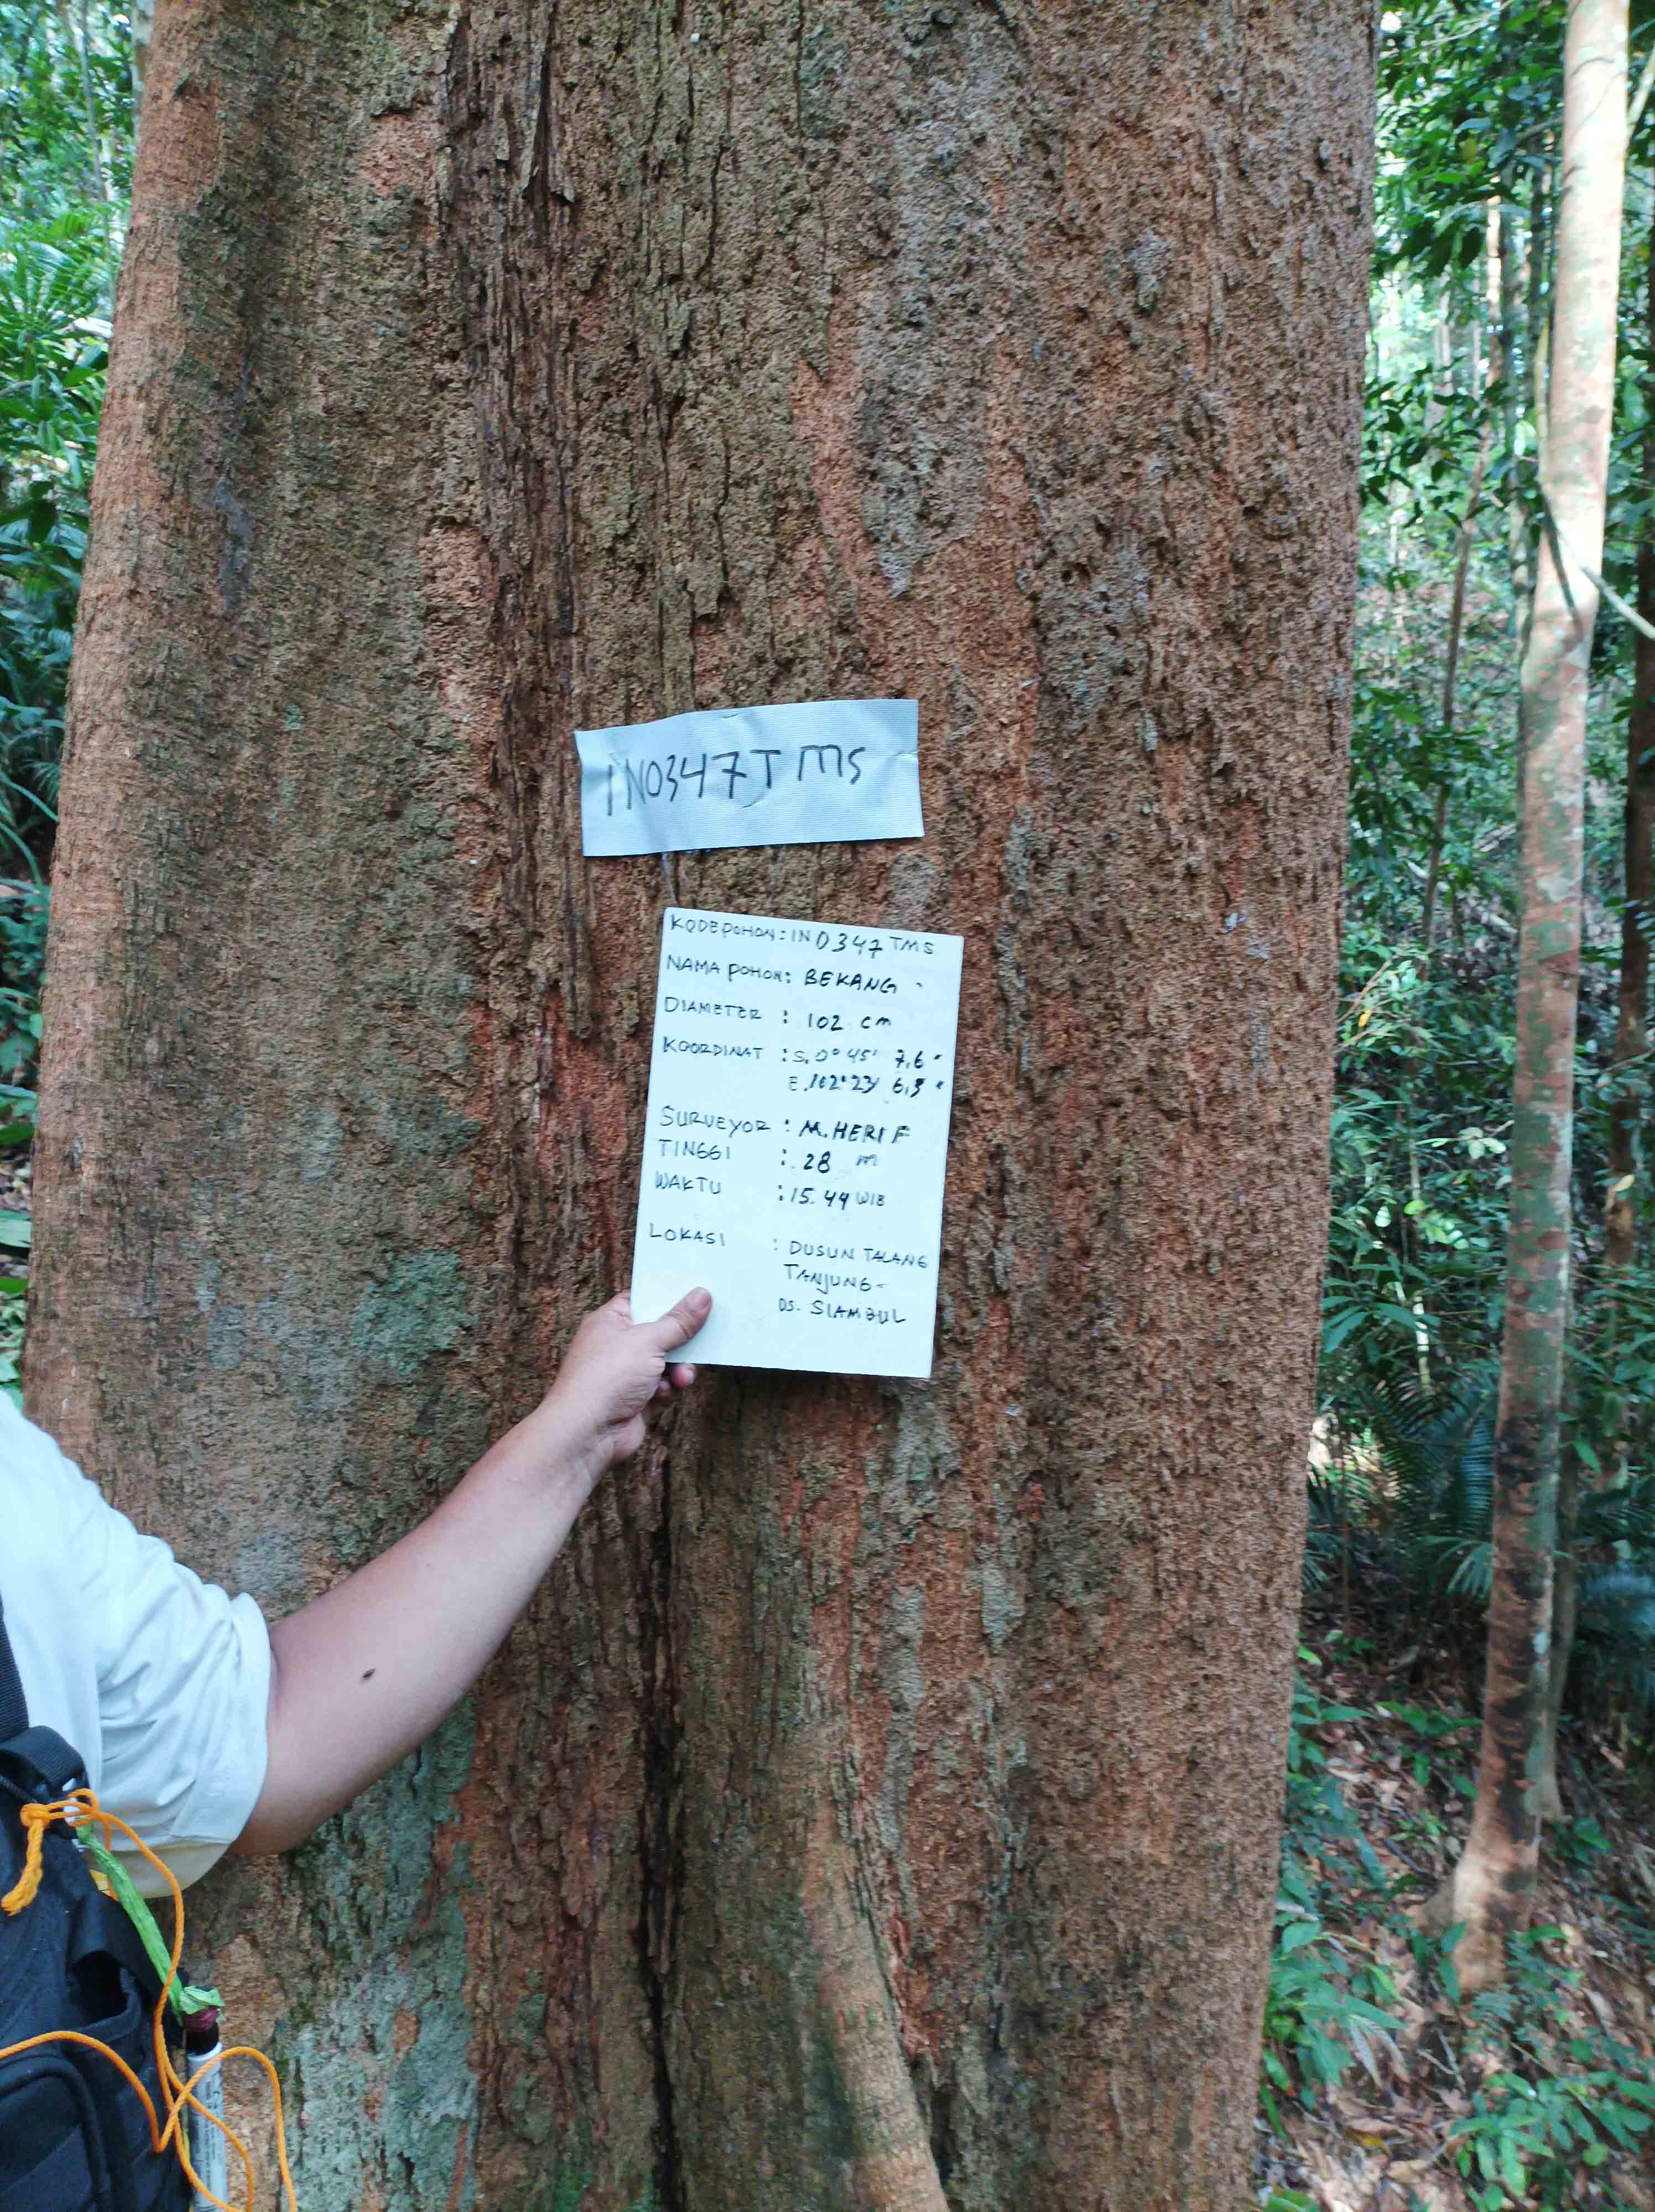 IN0347TMS
KODEPOHON: IN0347TMS
NAMA POHON: BEKANG
DIAMETER : 102 cm
KOORDINAT : S. 0° 45' 7,6"
E. 102° 23'
SURVEYOR : M. HERIF
TINGGI : 28 m
WAKTU : 15.44 WIB
LOKASI : DUSUN TALANG
TANJUNG-
DS. SIAMBUL